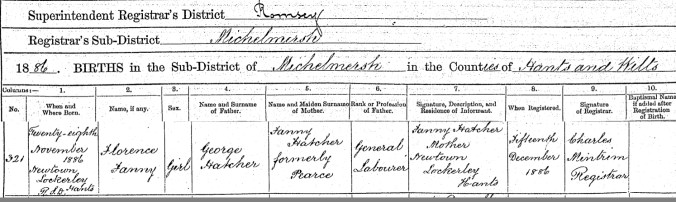 Superintendent Registrar's District Romsey
Registrar's Sub-District Michelmersh
1886. BIRTHS in the Sub-District of Michelmersh in the Counties of Hants and Wilts
Columns:— 1. 2. 3. 4. 5. 6. 7. 8. 9. 10.
No. When and Where Born. Name, if any. Sex. Name and Surname of Father. Name and Maiden Surname of Mother. Rank or Profession of Father. Signature, Description, and Residence of Informant. When Registered. Signature of Registrar. Baptismal Name if added after Registration of Birth.
321
Twenty-eighth
November
1886
Newtown
Lockerley
R.S.D. Hants
Florence
Fanny
Girl
George
Hatcher
Fanny
Hatcher
formerly
Pearce
General
Labourer
Fanny Hatcher
Mother
Newtown
Lockerley
Hants
Fifteenth
December
1886
Charles
Minbrim
Registrar